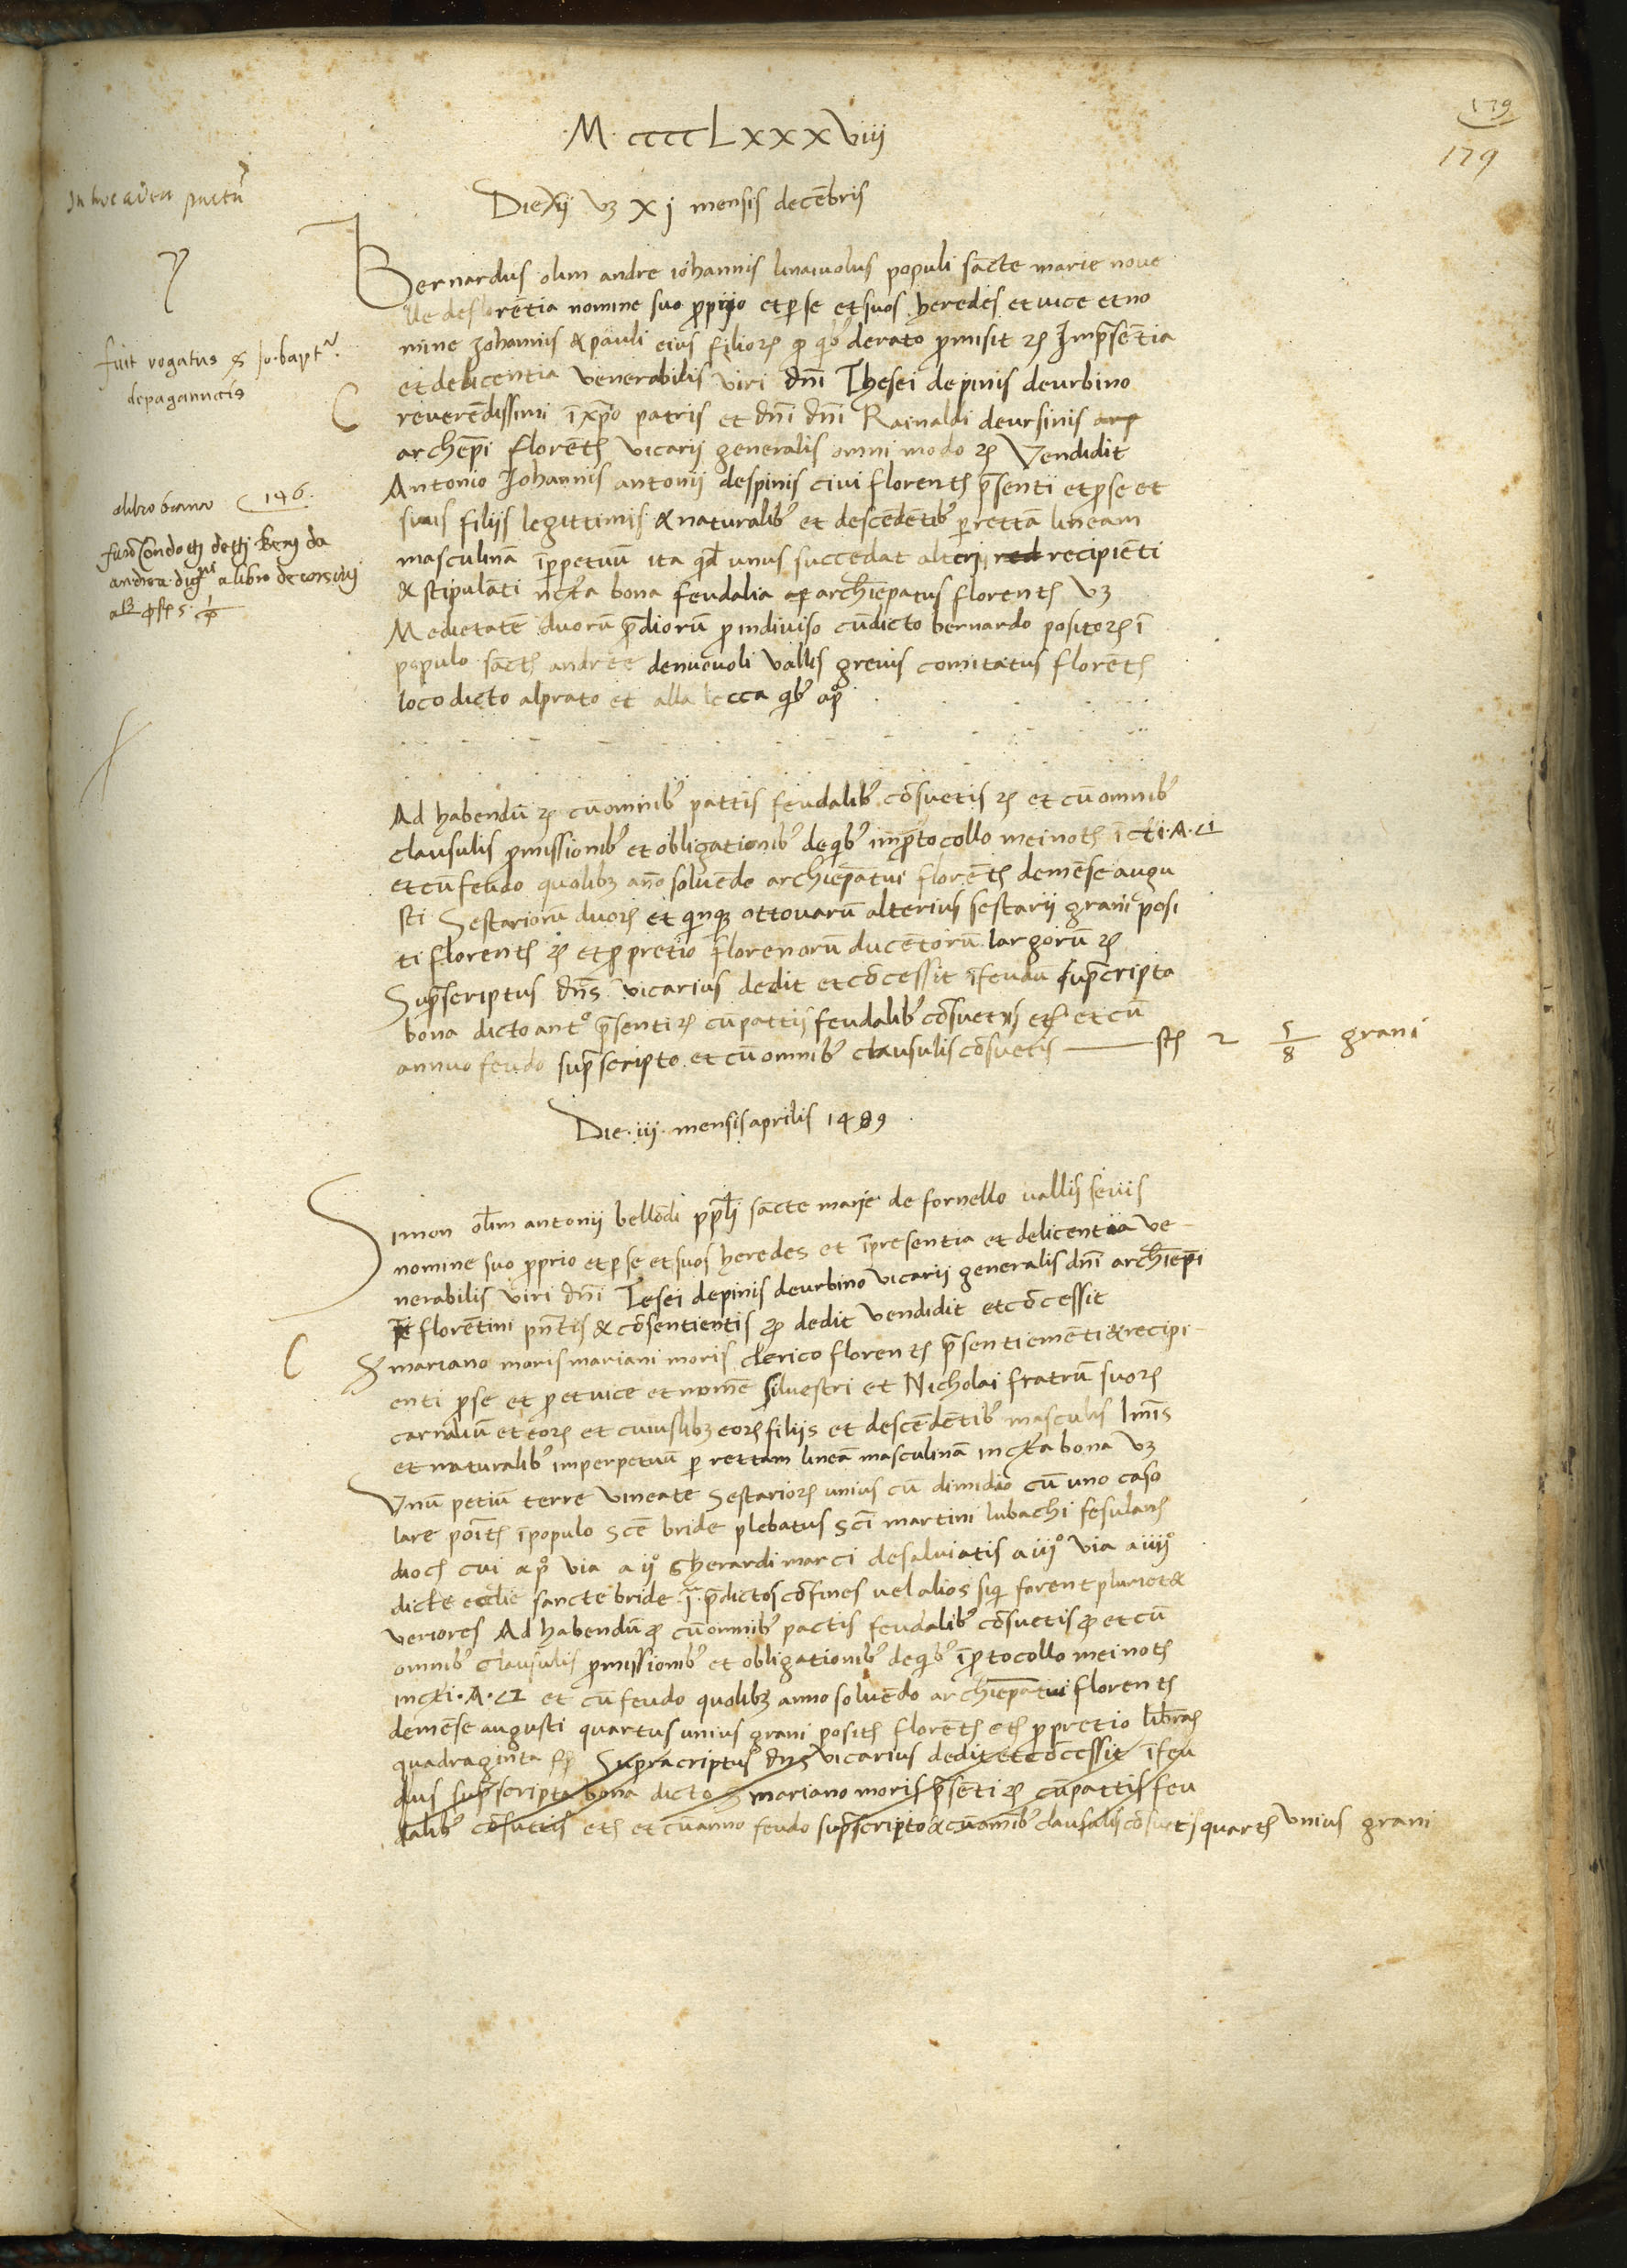 179
179
.M. cccc L x x x viij
Die Xij vz xj mensis decēbris
In hoc
fuit rogatus s Jo. bapt.
depaganuccis
146.
Bernardus olim andre iohannis linaiuolus populi sācte marie nove
lle de florētia nomine suo ppijo et p se et suos heredes et vice et no
mine Johannis & pauli eius filioꝝ p qb derato pmisit ꝛc Impsētia
et de licentia venerabilis viri dnī Thesei de pinis de urbino
reverēdissimi ī xpo patris et dnī dnī Rainaldi de ursinis
archiepi florētꝭ vicarij generalis omni modo ꝛc Vendidit
Antonio Johannis antonij de spinis civi florentꝭ psenti et p se et
suis filijs legittimis & naturalib et descēdētib p rettā lineam
masculinā īppetuū ita qd unus succedat alteri recipiēti
& stipulāti bona feudalia archiepatus florentꝭ vz
Medietatē duorū pdiorū p indiviso cū dicto bernardo positoꝝ ī
populo sactꝭ andree de nuovoli vallis grevis comitatus florētꝭ
loco dicto alprato et alla lecca qb
Ad habendū ꝛc cū omnib pattis feudalib cōsuetis ꝛc et cū omnib
clausulis pmissionib et obligationib de qb in ptocollo mei notꝭ
et cū feudo quolibz āno solvēdo archiepatui florētꝭ de mēse augu
sti Sestariorū duoꝝ et qinqz ottovarū alterius sestarij grani posi
ti florentꝭ ꝛc et p pretio florenorū ducētorū largorū ꝛc
Supscriptus dns vicarius dedit et cōcessit ī feudū supscripta
bona dicto anto psenti ꝛc cū pattis feudalib cōsuetis et cū
annuo feudo supscripto et cū omnib clausulis cōsuetis — stꝭ 2 5/8 grani
Die . iij . mensis aprilis 1489
Simon olim antonij bellōdi ppli sācte marie de fornello vallis sevis
nomine suo pprio et p se et suos heredes et ī presentia et de licentia ve-
nerabilis viri dnī Tesei de pinis de urbino vicarij generalis dnī archiepi
florētini pntis & cōsentientis ꝛc dedit vendidit et cōcessit
s mariano moris mariani moris clerico florentꝭ psenti emēti & recipi-
enti p se et p et vice et nomē silvestri et Nicholai fratrū suoꝝ
carnaliū et eoꝝ et cuiuslibz eoꝝ filijs et descēdētib masculis
et naturalib imperpetuū p rettam lineā masculinā bona vz
Vnū petiū terre vineate sestarioꝝ unius cū dimidio cū uno caso
lare poītꝭ ī populo scē bride plebatus scī martini lubachi fesulanꝭ
diocꝭ cui a po via a ijo Gherardi marci de salviatis a iijo via a iiijo
dicte ecclie sancte bride pdictos cōfines vel alios siqi forent pluriores
veriores Ad habendū ꝛc cū omnib pactis feudalib cōsuetis ꝛc et cū
omnib clausulis pmissionib et obligationib de qb ī ptocollo mei notꝭ
et cū feudo quolibz anno solvēdo archiepatui florentꝭ
de mēse augusti quartus unius grani positꝭ florētꝭ p pretio librāꝝ
quadraginta ꝛc Supracriptus dns vicarius dedit et cōcessit ī feu
dus supscripta bona dicto s mariano moris psēti ꝛc cū pattis feu
dalib cōsuetis et cū anno feudo supscripto & cū omnib clausulis cōsuetis quartꝭ unius grani